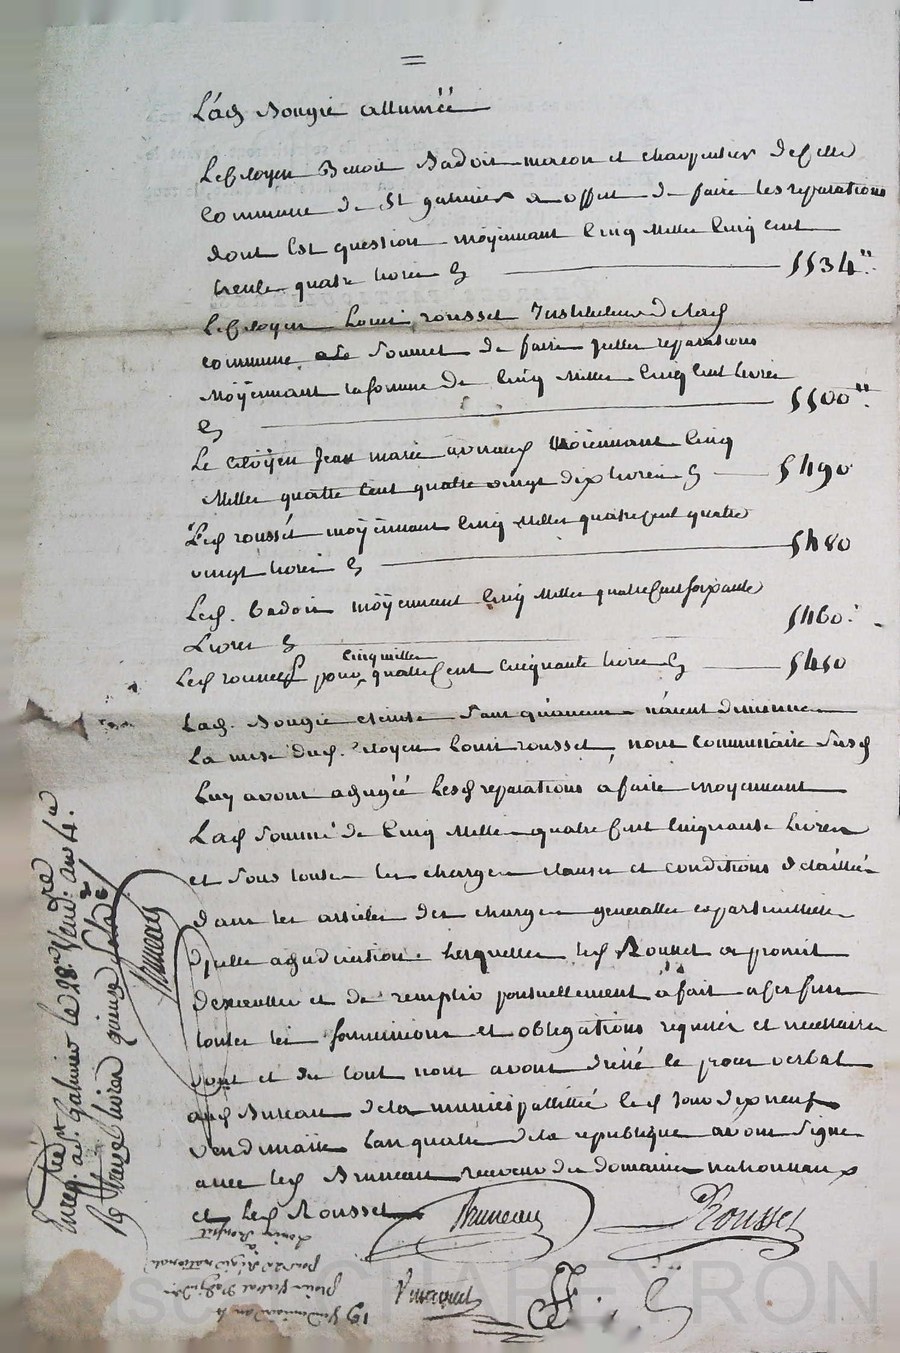 L'ad Bougie allumëë
Le Citoyen Benoit Badoit macon et charpentier de cette
commune de St galmier a offert de faire les reparations
dont Est question moÿennant Cinq Milles Cinq cent
trente quatre livres 5534"
Le Citoyen Louis rousset Instituteur de lad
commune a de Soumet de faire reparations
Moÿennant la somme de Cinq Milles Cinq Cent livres
5500"
Le Citoÿen Jean marie moiennant Cinq
Milles quatre Cent quatre vingt dix livres 5490
Led roussét moÿennant Cinq Milles quatre Cent quatre
vingt livres 5480
Led. badoit moÿennant Cinq Milles quatre Cent soixante
Livres 5460
cinq milles
Led rousset pour quatre Cent Cinquante livres 5450
Lad. Bougie eteinte Sans qu'aucun n'aient diminué
La mise dud. Citoyen Louis rousset, nous Commissaire Susd
Luy avons adjugéé Lesd reparations a faire moyennant
Lad Sommé de Cinq Milles quatre Cent Cinquante Livres
et Sous toutes les charges clauses et conditions detaillées
dans les articles des charges generalles et particulieres
adjudication lesquelles led Rousset a promit
d'executter et de remplir ponctuellement
toutes les soumissions et obligations requises et necessaires
dont et du tout nous avons dréssé le proces verbal
aud Bureau de la municipallitéé led Jour dix neuf
Vendimaire L'an quatre de la république avons Signé
avec led Bruneau receveur des domaines nationnaux
et led Rousset
Bruneau Rousset
Enreg. a St. Galmier le 28 Vend.re an 4.e
R Treize livres quinze sols
Bruneau
19 Vendemiaire an 4
proces verbal d'adjudion
national
a
Louis Rousset
CHAPEYRON